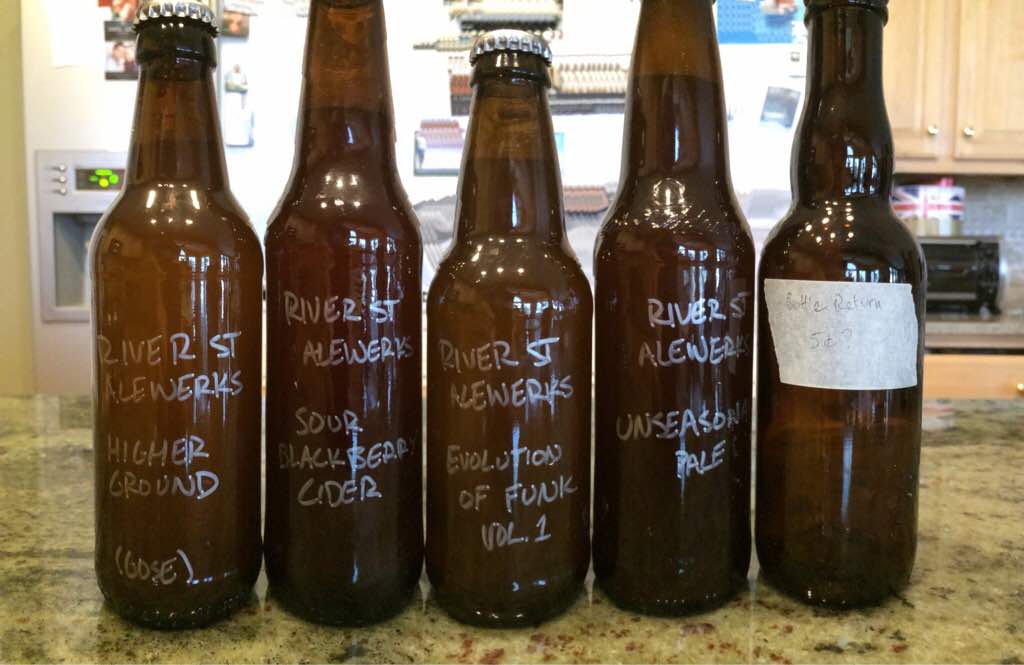 RIVER ST
ALEWERKS
HIGHER
GROUND
(GOSE)
RIVER ST
ALEWERKS
SOUR
BLACKBERRY
CIDER
RIVER ST
ALEWERKS
EVOLUTION
OF FUNK
VOL. 1
RIVER ST
ALEWERKS
UNSEASONAL
PALE
Bottle Return
5¢?